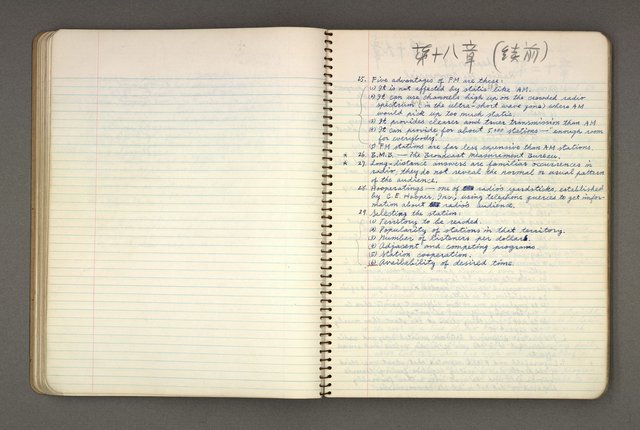 第十八章 (续前)
25. Five advantages of FM are these:
(1) It is not affected by static like AM.
(2) It can use channels high up on the crowded radio
spectrum (in the ultra-short wave zone) where AM
would pick up too much static.
(3) It provides clearer and truer transmission than AM.
(4) It can provide for about 5,000 stations — enough room
for everybody.
(5) FM stations are far less expensive than AM stations.
x 26. B.M.B. — The Broadcast Measurement Bureau.
x 27. Long-distance answers are familiar occurrences in
radio, they do not reveal the normal or usual pattern
of the audience.
28. Hooperatings — one of radio's yardsticks, established
by C. E. Hooper, Inc., using telephone queries to get infor-
mation about radio's audience.
29. Selecting the station:
(1) Territory to be reached.
(2) Popularity of stations in that territory.
(3) Number of listeners per dollar.
(4) Adjacent and competing programs.
(5) Station cooperation.
(6) Availability of desired time.